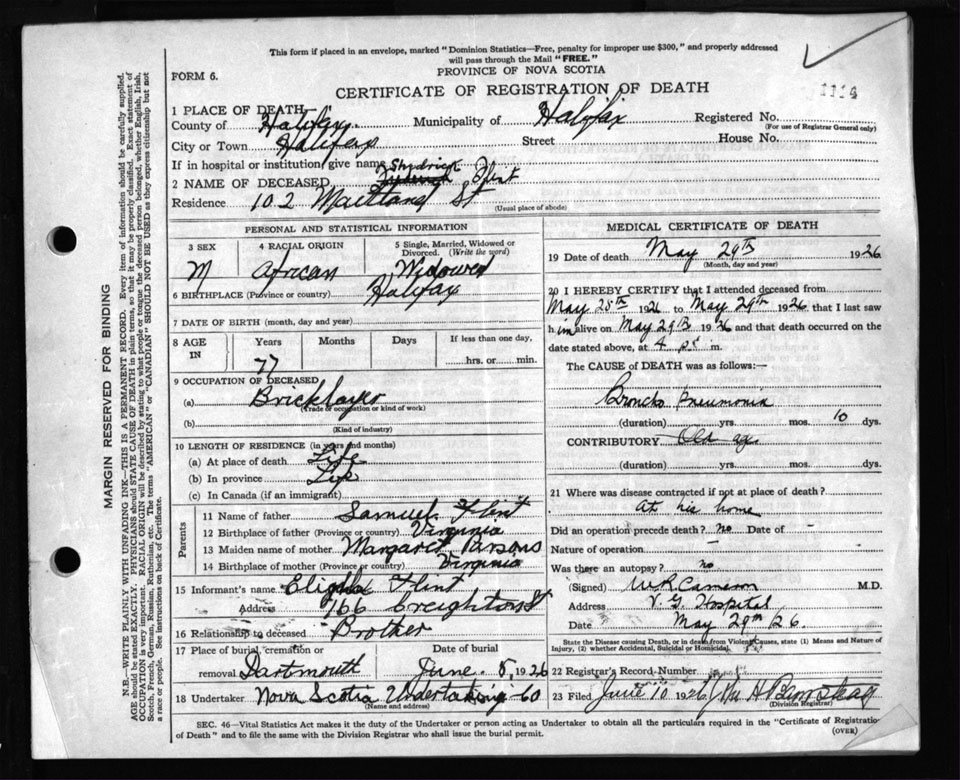 This form if placed in an envelope, marked "Dominion Statistics—Free, penalty for improper use $300," and properly addressed
will pass through the Mail "FREE."
FORM 6.
PROVINCE OF NOVA SCOTIA
CERTIFICATE OF REGISTRATION OF DEATH
1114
1 PLACE OF DEATH
County of Halifax Municipality of Halifax Registered No.
(For use of Registrar General only)
City or Town Halifax Street House No.
If in hospital or institution give name
2 NAME OF DECEASED Shydrick Flint
Residence 102 Maitland St
(Usual place of abode)
PERSONAL AND STATISTICAL INFORMATION
3 SEX 4 RACIAL ORIGIN 5 Single, Married, Widowed or Divorced. (Write the word)
M African Widowed
6 BIRTHPLACE (Province or country) Halifax
7 DATE OF BIRTH (month, day and year)
8 AGE IN Years Months Days If less than one day,
77 hrs. or min.
9 OCCUPATION OF DECEASED
(a) Bricklayer
(Trade or occupation or kind of work)
(b)
(Kind of industry)
10 LENGTH OF RESIDENCE (in years and months)
(a) At place of death Life
(b) In province Life
(c) In Canada (if an immigrant)
Parents
11 Name of father Samuel Flint
12 Birthplace of father (Province or country) Virginia
13 Maiden name of mother Margaret Parsons
14 Birthplace of mother (Province or country) Virginia
15 Informant's name Flint
Address 166 Creighton St
16 Relationship to deceased Brother
17 Place of burial, cremation or removal Dartmouth Date of burial June 8, 1926
18 Undertaker Nova Scotia Undertaking Co
(Name and address)
MEDICAL CERTIFICATE OF DEATH
19 Date of death May 29th 1926
(Month, day and year)
20 I HEREBY CERTIFY that I attended deceased from
May 28th 1926 to May 29th 1926 that I last saw
him alive on May 29th 1926 and that death occurred on
date stated above, at 4 p m.
The CAUSE of DEATH was as follows:—
Broncho Pneumonia
(duration) yrs. mos. 10 dys.
CONTRIBUTORY Old age
(duration) yrs. mos. dys.
21 Where was disease contracted if not at place of death?
At his home
Did an operation precede death? no Date of
Nature of operation
Was there an autopsy? no
(Signed) W R Cameron M.D.
Address V. G. Hospital
Date May 29th 26.
State the Disease causing Death, or in death from Violent Causes, state (1) Means and Nature of
Injury, (2) whether Accidental, Suicidal or Homicidal.
22 Registrar's Record Number
23 Filed June 10 1926
(Division Registrar)
SEC. 46—Vital Statistics Act makes it the duty of the Undertaker or person acting as Undertaker to obtain all the particulars required in the "Certificate of Registration
of Death" and to file the same with the Division Registrar who shall issue the burial permit.
(OVER)
MARGIN RESERVED FOR BINDING
N.B.—WRITE PLAINLY WITH UNFADING INK—THIS IS A PERMANENT RECORD. Every item of information should be carefully supplied.
AGE should be stated EXACTLY. PHYSICIANS should STATE CAUSE OF DEATH in plain terms, so that it may be properly classified. Exact statement of
OCCUPATION is very important. RACIAL ORIGIN will be described by stating to what people or tongue the deceased person belonged, whether English, Irish,
Scotch, French, German, Russian, Ruthenian, etc. The terms "AMERICAN" or "CANADIAN" SHOULD NOT BE USED as they express citizenship but not
a race or people. See instructions on back of Certificate.